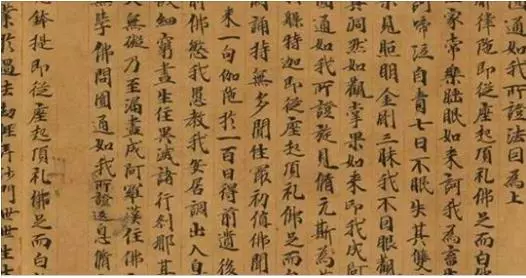 圓通如我所證法因為上
那律陁即從座起頂礼佛足而白
家常樂睡眠如来訶我為畜
訶啼泣自責七日不眠失其雙
見照明金剛三昧我不因眼觀
真洞然如觀掌果如来印我成阿
圓通如我所證旋見循元斯為
槃特迦即從座起頂礼佛足而白
誦持無多聞性最初值佛聞
来一句伽陁於一百日得前遺後
佛愍我愚教我安居調出入息
細窮盡生住異滅諸行刹那其
大無礙乃至漏盡成阿羅漢住佛
無學佛問圓通如我所證返息循
鉢提即從座起頂礼佛足而白
業於過去劫輕弄沙門世世生